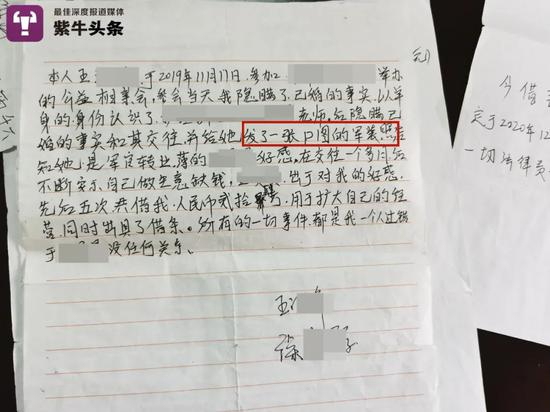 最佳深度报道媒体
紫牛头条
本人王 于2019年11月17日,参加 举办
的公益相亲会,当天我隐瞒了已婚的事实,以单
身的身份认识了 老师,在隐瞒已
婚的事实和其交往,并给她发了一张P图的军装照
知她是军 转业 的 好感,在交往一个多月后
不断表示自己做生意缺钱, 出于对我的好感,
先后五次共借我人民币 用于扩大自己的经
营,同时出具了借条。所有的一切事件都是我一个人过错
于 没任何关系、
王
徐
今借
定于2020年12
一切法律责任